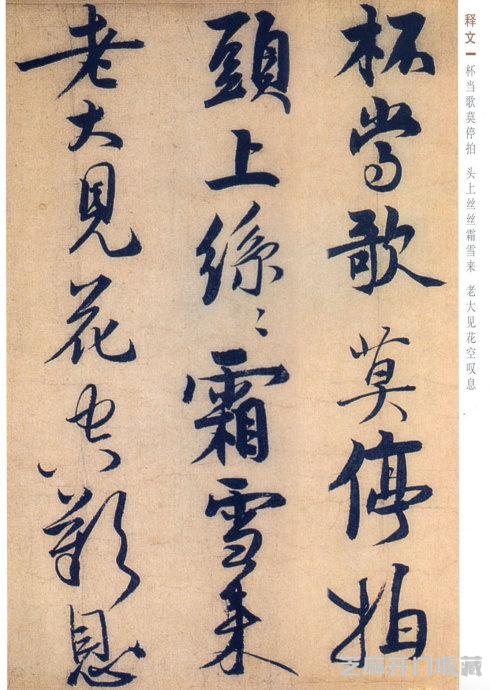 杯當歌莫停拍
頭上絲〻霜雪来
老大見花空歎息
释文
杯当歌莫停拍 头上丝丝霜雪来 老大见花空叹息